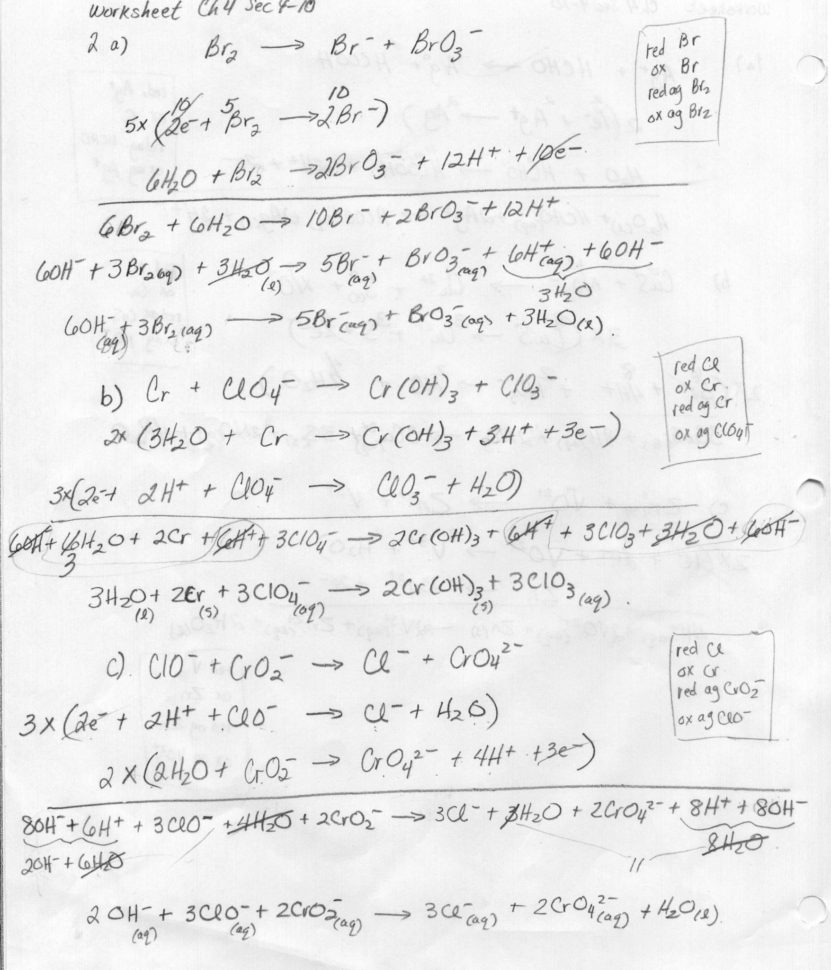 Worksheet Ch4 Sec 4-10
2 a) Br₂ → Br⁻ + BrO₃⁻
red Br
ox Br
red ag Br₂
ox ag Br₂
10 5 10
5x (2e⁻ + Br₂ → 2Br⁻)
6H₂O + Br₂ → 2BrO₃⁻ + 12H⁺ + 10e⁻
6Br₂ + 6H₂O → 10Br⁻ + 2BrO₃⁻ + 12H⁺
6OH⁻ + 3Br₂(aq) + 3H₂O(l) → 5Br⁻(aq) + BrO₃⁻(aq) + 6H⁺(aq) + 6OH⁻
3H₂O
6OH⁻(aq) + 3Br₂(aq) → 5Br⁻(aq) + BrO₃⁻(aq) + 3H₂O(l).
b) Cr + ClO₄⁻ → Cr(OH)₃ + ClO₃⁻
red Cl
ox Cr
red ag Cr
ox ag ClO₄⁻
2x (3H₂O + Cr → Cr(OH)₃ + 3H⁺ + 3e⁻)
3x(2e⁻+ 2H⁺ + ClO₄⁻ → ClO₃⁻ + H₂O)
6OH⁻ + 6H₂O + 2Cr + 6H⁺ + 3ClO₄⁻ → 2Cr(OH)₃ + 6H⁺ + 3ClO₃ + 3H₂O + 6OH⁻
3
3H₂O(l) + 2Cr(s) + 3ClO₄⁻(aq) → 2Cr(OH)₃(s) + 3ClO₃⁻(aq).
c). ClO⁻ + CrO₂⁻ → Cl⁻ + CrO₄²⁻
red Cl
ox Cr
red ag CrO₂⁻
ox ag ClO⁻
3x (2e⁻ + 2H⁺ + ClO⁻ → Cl⁻ + H₂O)
2x(2H₂O + CrO₂⁻ → CrO₄²⁻ + 4H⁺ + 3e⁻)
8OH⁻ + 6H⁺ + 3ClO⁻ + 4H₂O + 2CrO₂⁻ → 3Cl⁻ + 3H₂O + 2CrO₄²⁻ + 8H⁺ + 8OH⁻
2OH⁻ + 6H₂O 8H₂O
2OH⁻(aq) + 3ClO⁻(aq) + 2CrO₂⁻(aq) → 3Cl⁻(aq) + 2CrO₄²⁻(aq) + H₂O(l).